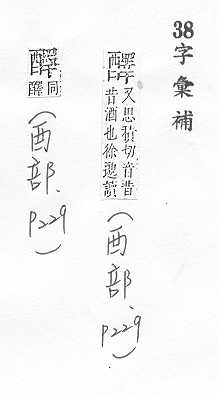 38 字彙補
醳 又思積切音昔
昔酒也徐邈讀
(酉部、p229)
同
醳
(酉部、p229)